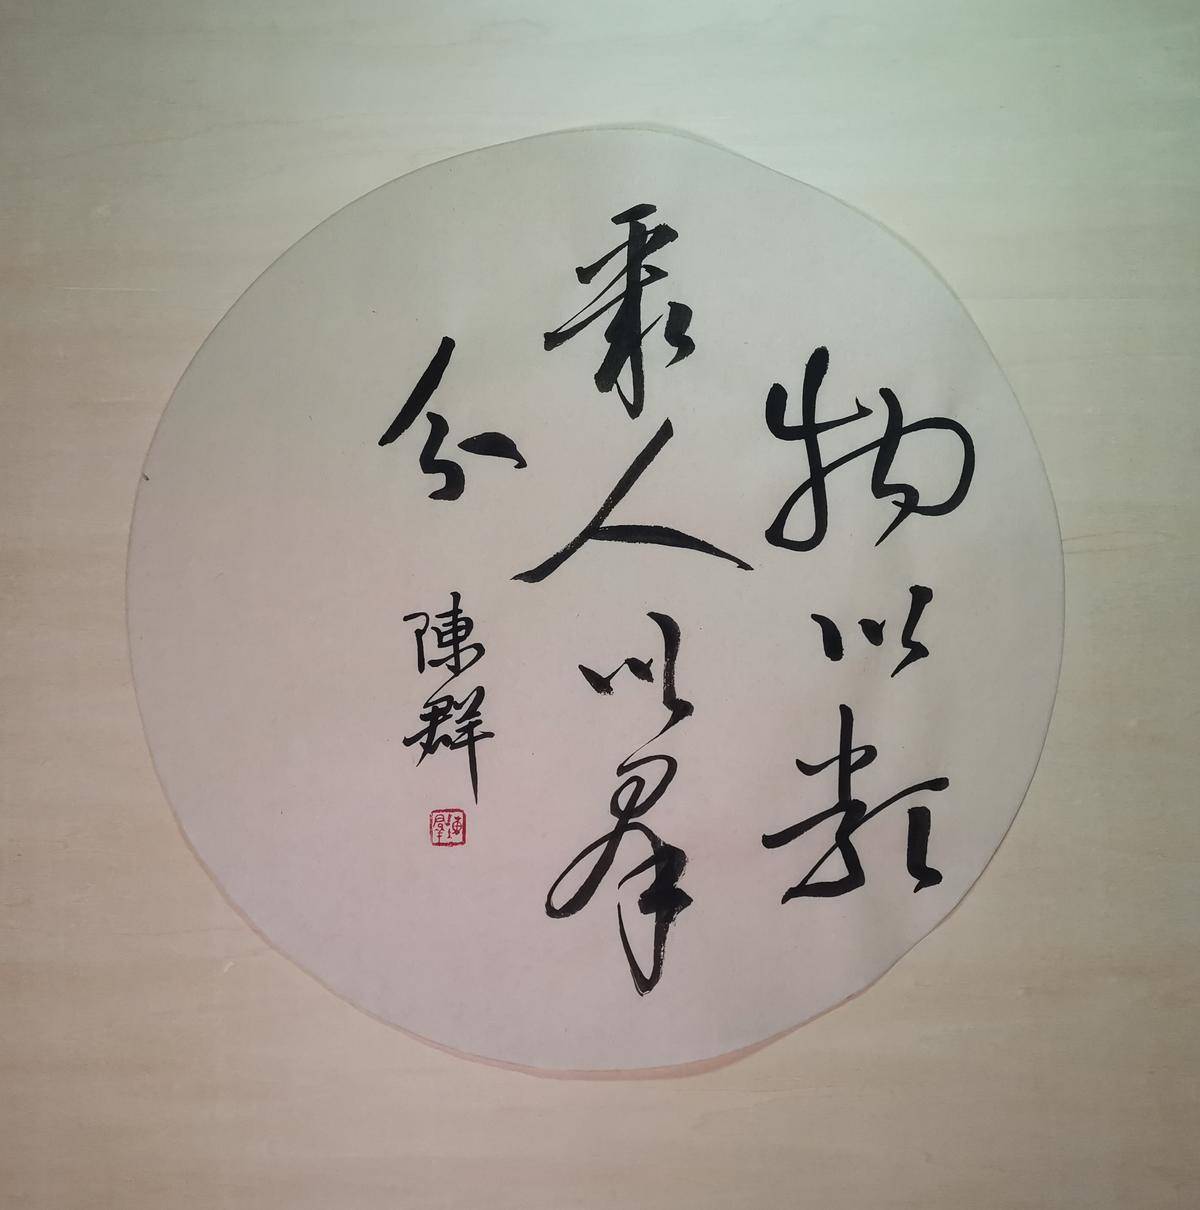 物以類
聚人以群
分
陳群
陳群